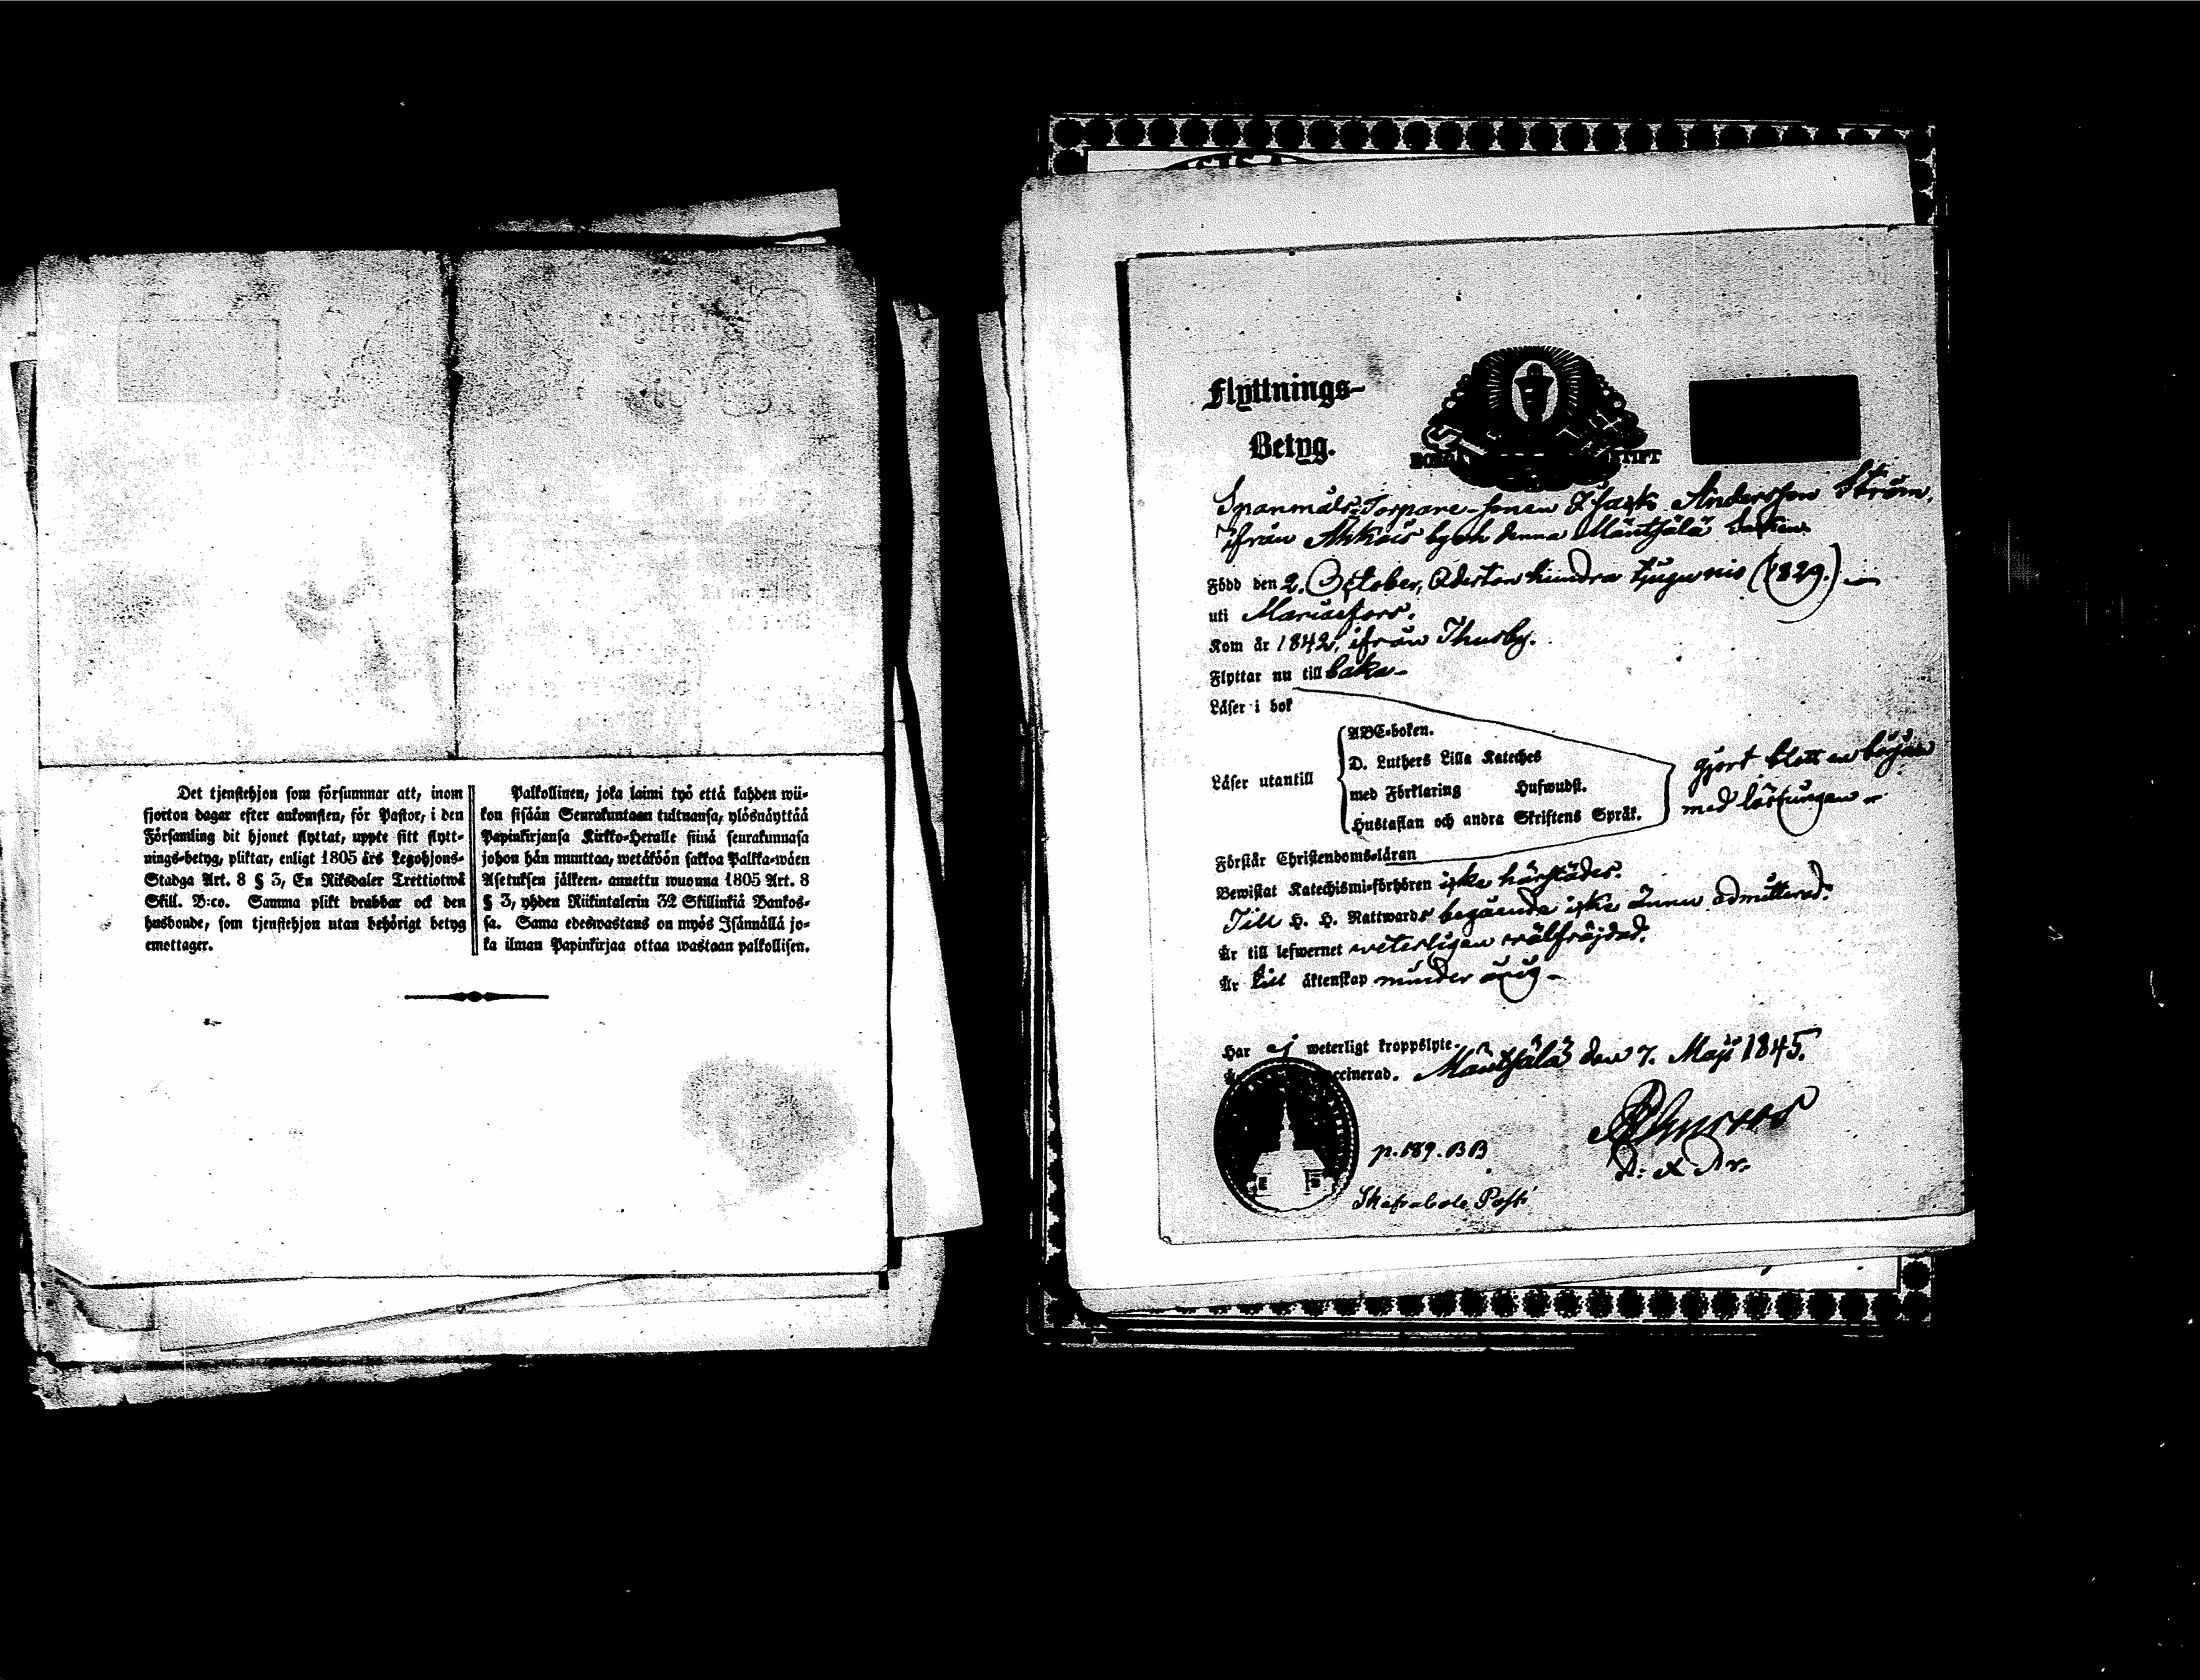 Det tjenstehjon som försummar att, inom
fjorton dagar efter ankomsten, för Pastor, i den
Församling dit hjonet flyttat, uppte sitt flytt-
nings-betyg, pliktar, enligt 1805 års Legohjons-
Stadga Art. 8 § 3, En Riksdaler Trettiotwå
Skill. B:co. Samma plikt drabbar ock den
husbonde, som tjenstehjon utan behörigt betyg
emottager.
Palkollinen, joka laimi lyö että kahden wii-
kon sisään Seurakuntaan tultuansa, ylösnäyttää
Papinkirjansa Kirkko-Herralle siinä seurakunnasa
johon hän muuttaa, wetäköön sakkoa Palkka-wäen
Asetuksen jälkeen, annettu wuonna 1805 Art. 8
§ 3, yhden Riikintalerin 32 Skillinkiä Bankos-
sa. Sama edeswastaus on myös Isännällä jo-
ka ilman Papinkirjaa ottaa wastaan palkollisen.
Flyttnings-
Betyg.
BORGÅ STIFT
Spanmåls-Torpare-sonen Isaak Andersson Ström,
ifrån Ahkois by och denna Mäntsälä Socken
Född den 2. October, Aderton hundra tjugu nio (1829.)
uti Mariaefors.
Kom år 1842, ifrån Thusby.
Flyttar nu till baka
Läser i bok
Läser utantill
ABC-boken.
D. Luthers Lilla Kateches
med Förklaring Hufwudst.
Hustaflan och andra Skriftens Språk.
gjort blott en början
med läsningen
Förstår Christendoms-läran
Bewistat Katechismi-förhören icke härstädes.
Till H. H. Nattwards begående icke ännu admitterad.
Är till lefwernet veterligen välfräjdad.
Är till äktenskap minder årig
Har ej weterligt kroppslyte.
ccinerad. Mäntsälä den 7. Maji 1845.
p. 189. BB